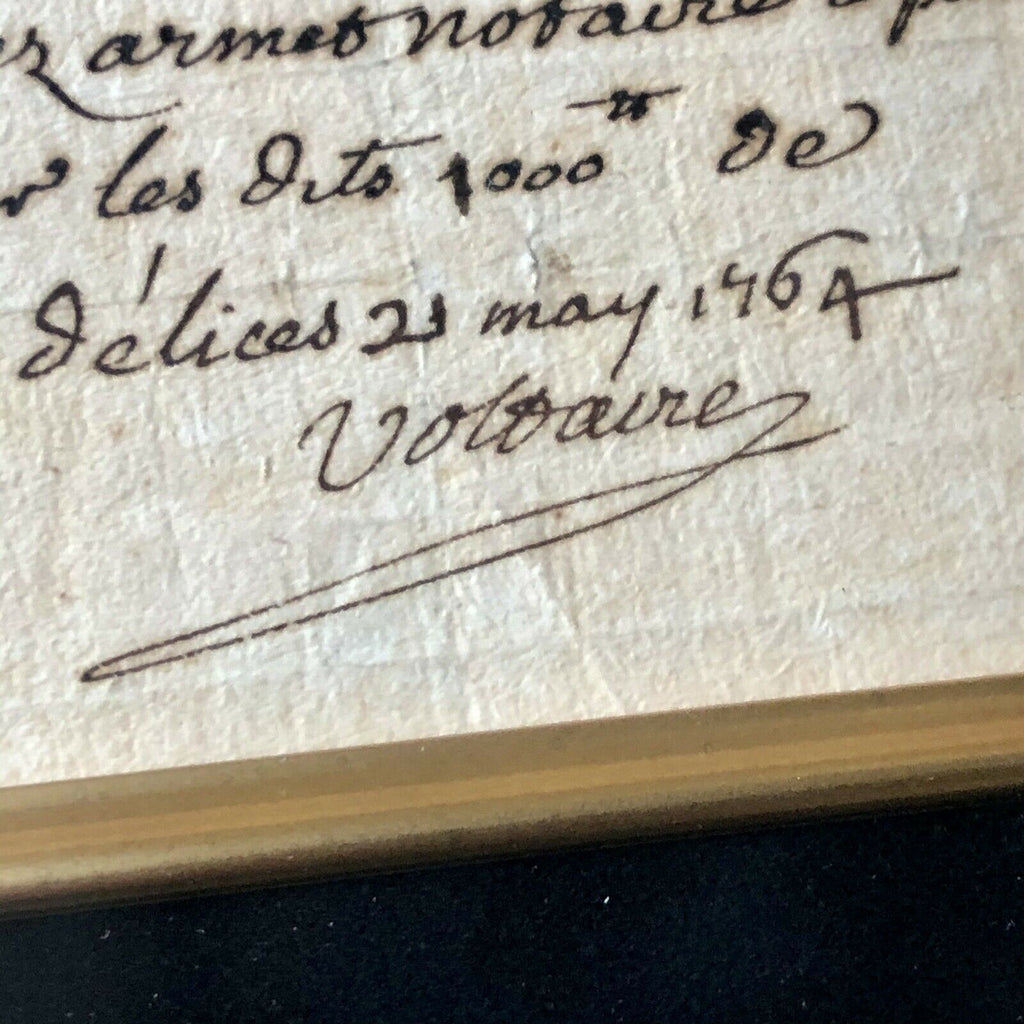 armet notaire a
les dits 1000₶ de
délices 21 may 1764
Voltaire